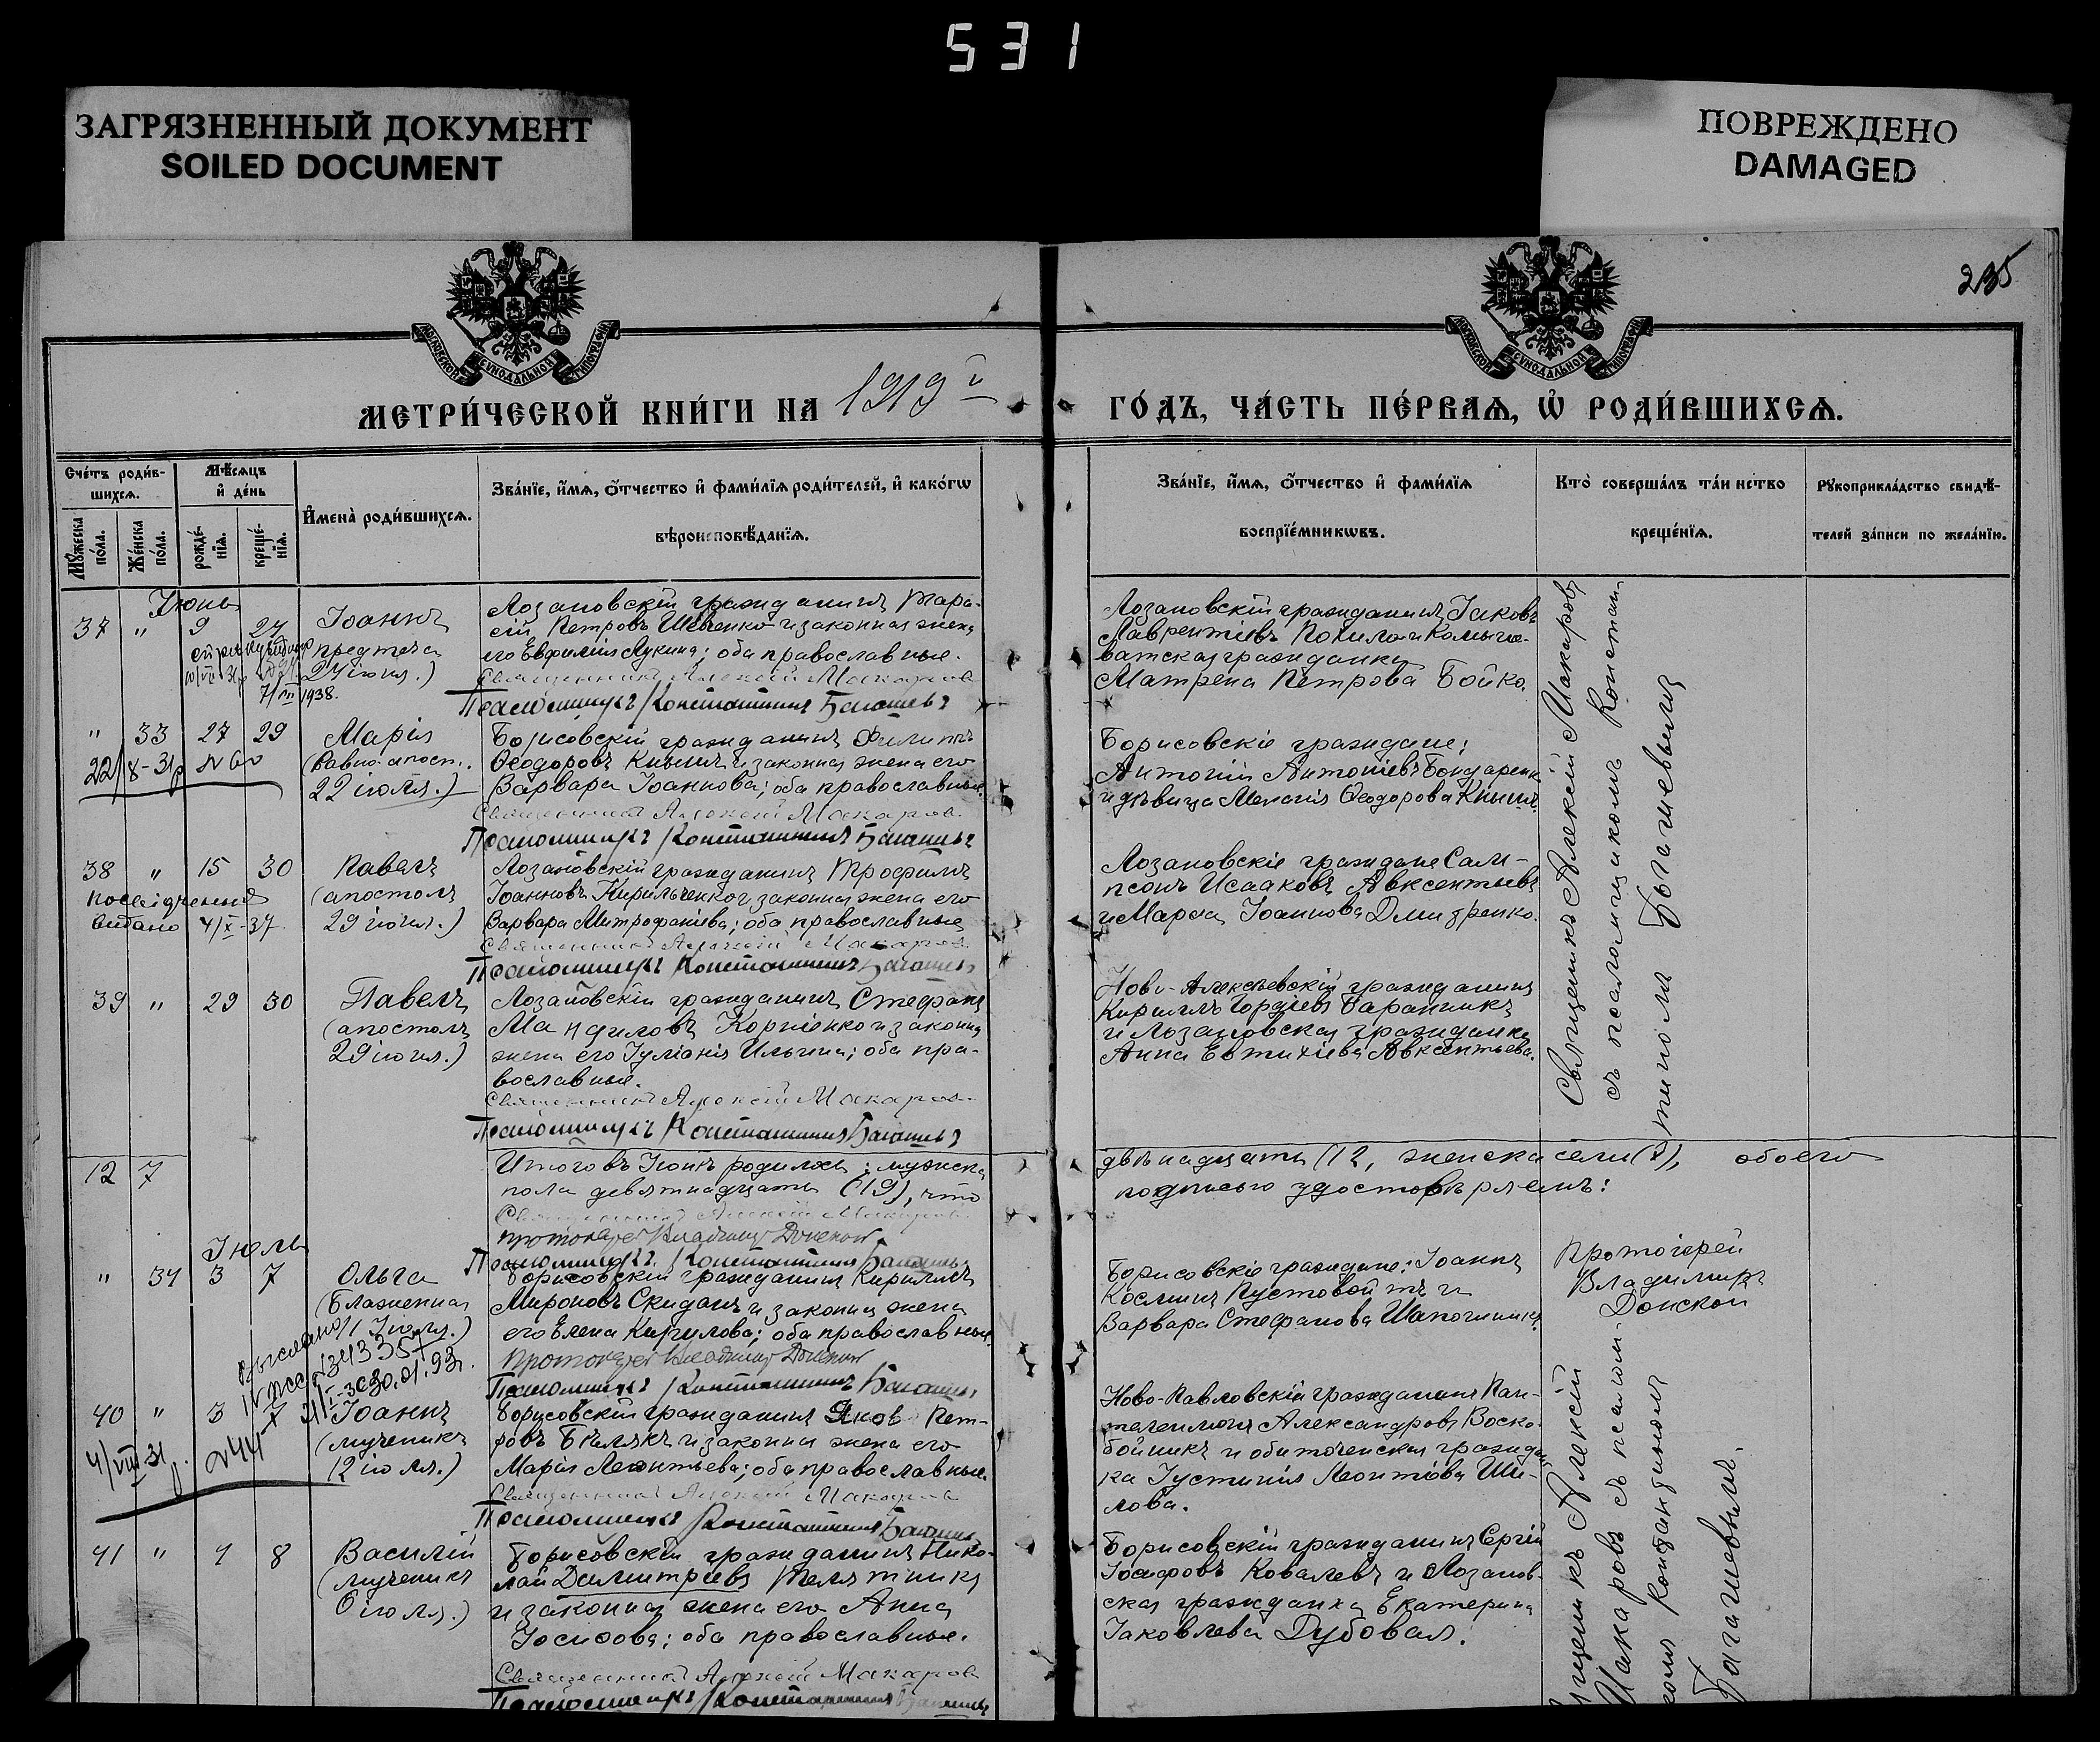 531
ЗАГРЯЗНЕННЫЙ ДОКУМЕНТ
SOILED DOCUMENT
ПОВРЕЖДЕНО
DAMAGED
235
МОСКОВСКОЙ СУНОДАЛЬНОЙ ТИПОГРАФІИ
МОСКОВСКОЙ СУНОДАЛЬНОЙ ТИПОГРАФІИ
МЕТРИ́ЧЕСКОЙ КНИ́ГИ НА 1919й
ГО́ДЪ, ЧА́СТЬ ПЕ́РВАѦ, Ѡ҆ РОДИ́ВШИХСѦ.
Сче́тъ роди́в-
шихсѧ.
Мꙋ́жеска
по́ла.
Же́нска
по́ла.
Мѣ́сѧцъ
и҆ де́нь
рожде́-
нїѧ.
креще́-
нїѧ.
И҆мена̀ роди́вшихсѧ.
Зва́нїе, и҆́мѧ, ѻ҆́тчество и҆ фами́лїѧ роди́телей, и҆ како́гѡ
вѣроисповѣ́данїѧ.
Зва́нїе, и҆́мѧ, ѻ҆́тчество и҆ фами́лїѧ
воспрїе́мникѡвъ.
Кто̀ соверша́лъ та́инство
креще́нїѧ.
Рꙋкоприкла́дство свидѣ́-
телей за́писи по жела́нїю.
Іюнь
37 " 9 24
Іоаннъ
предтеча
24 іюня.)
7/VII 1938.
Лозановскій гражданинъ Тара-
сій Петровъ Шевченко и законная жена
его Евфимія Лукина; оба православные.
Священникъ Алексій Макаровъ
Псаломщикъ Константинъ Багашевъ
Лозановскій гражданинъ Іаковъ
Лаврентіевъ Похило и Камыше-
ватская гражданка
Матрена Петрова Бойко.
Священникъ Алексій Макаровъ
съ псаломщикомъ Констан-
тиномъ Багашевымъ
" 33 27 29
22/8-31р N 60
Марія
(равно-апост.
22 іюля.)
Борисовскій гражданинъ Филиппъ
Ѳеодоровъ Книшъ и законная жена его
Варвара Іоаннова; оба православные.
Священникъ Алексій Макаровъ
Псаломщикъ Константинъ Багашевъ
Борисовскіе граждане:
Антоній Антоніевъ Бондаренко
и дѣвица Меланія Ѳеодорова Книшъ.
38 " 15 30
выдано 4/X-37.
Павелъ
(апостолъ
29 іюня.)
Лозановскій гражданинъ Трофимъ
Іоанновъ Кирильченко и законная жена его
Варвара Митрофаніева; оба православные
Священникъ Алексій Макаровъ
Псаломщикъ Константинъ Багашевъ
Лозановскіе граждане Сам-
псонъ Исааковъ Авксентьевъ
и Марѳа Іоаннова Дмитренко.
39 " 29 30
Павелъ
(апостолъ
29 іюня.)
Лозановскій гражданинъ Стефанъ
Корніенко и законная
жена его Іуліанія Ильина; оба пра-
вославные.
Священникъ Алексій Макаровъ
Псаломщикъ Константинъ Багашевъ
Ново-Алексѣевскій гражданинъ
Кириллъ Гордіевъ Баранникъ
и Лозановская гражданка
Анна Евтихіева Авксентьева.
12 7
Итого въ Іюнѣ родилось: мужска
пола девятнадцать (19), что
двѣнадцать (12, женска семь (7), обоего
подписью удостовѣряемъ:
Священникъ Алексій Макаровъ
протоіерей Владимиръ Донской
Псаломщикъ Константинъ Багашевъ
Іюль
" 34 3 7
Ольга
(Блаженная
11 Іюля.)
выслано
30.01.93г.
Борисовскій гражданинъ Кириллъ
Мироновъ Скиданъ и законная жена
его Елена Кирилова; оба православные.
протоіерей Владимиръ Донской
Псаломщикъ Константинъ Багашевъ
Борисовскіе граждане: Іоаннъ
Косминъ Пустовойтъ и
Варвара Стефанова Шапошникъ.
Протоіерей
Владимиръ
Донской
40 " 3 7
4/VIII 31 N 44
Іоаннъ
(мученикъ
12 іюля.)
Борисовскій гражданинъ Яковъ Пет-
ровъ Бѣлякъ и законная жена его
Марія Леонтьева; оба православные.
Священникъ Алексій Макаровъ
Псаломщикъ Константинъ Багашевъ
Ново-Павловскій гражданинъ Пан-
телеимонъ Александровъ Воско-
бойникъ и обиточенская граждан-
ка Іустинія Леонтіева Ши-
лова.
Священникъ Алексій
Макаровъ съ псалом-
щикомъ Константиномъ
Багашевымъ.
41 " 4 8
Василій
(мученикъ
6 іюля.)
Борисовскій гражданинъ Нико-
лай Димитріевъ Телятникъ
и законная жена его Анна
Іосифова; оба православные.
Священникъ Алексій Макаровъ
Псаломщикъ Константинъ Багашевъ
Борисовскій гражданинъ Сергій
Іосифовъ Ковалевъ и Лозанов-
ская гражданка Екатерина
Іаковлева Дубовая.